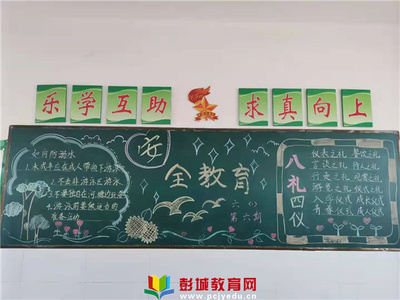 乐学互助 求真向上
如何防溺水
1.未成年应在成人带领下游泳
4.游泳前要做适当的
准备活动
安全教育
六(1)
第六期
八礼四仪
仪表之礼 餐饮之礼
言谈之礼 待人之礼
行走之礼 观赏之礼
游览之礼 仪式之礼
入学仪式 成长仪式
青春仪式 成人仪式
彭城教育网
www.pcjyedu.cn